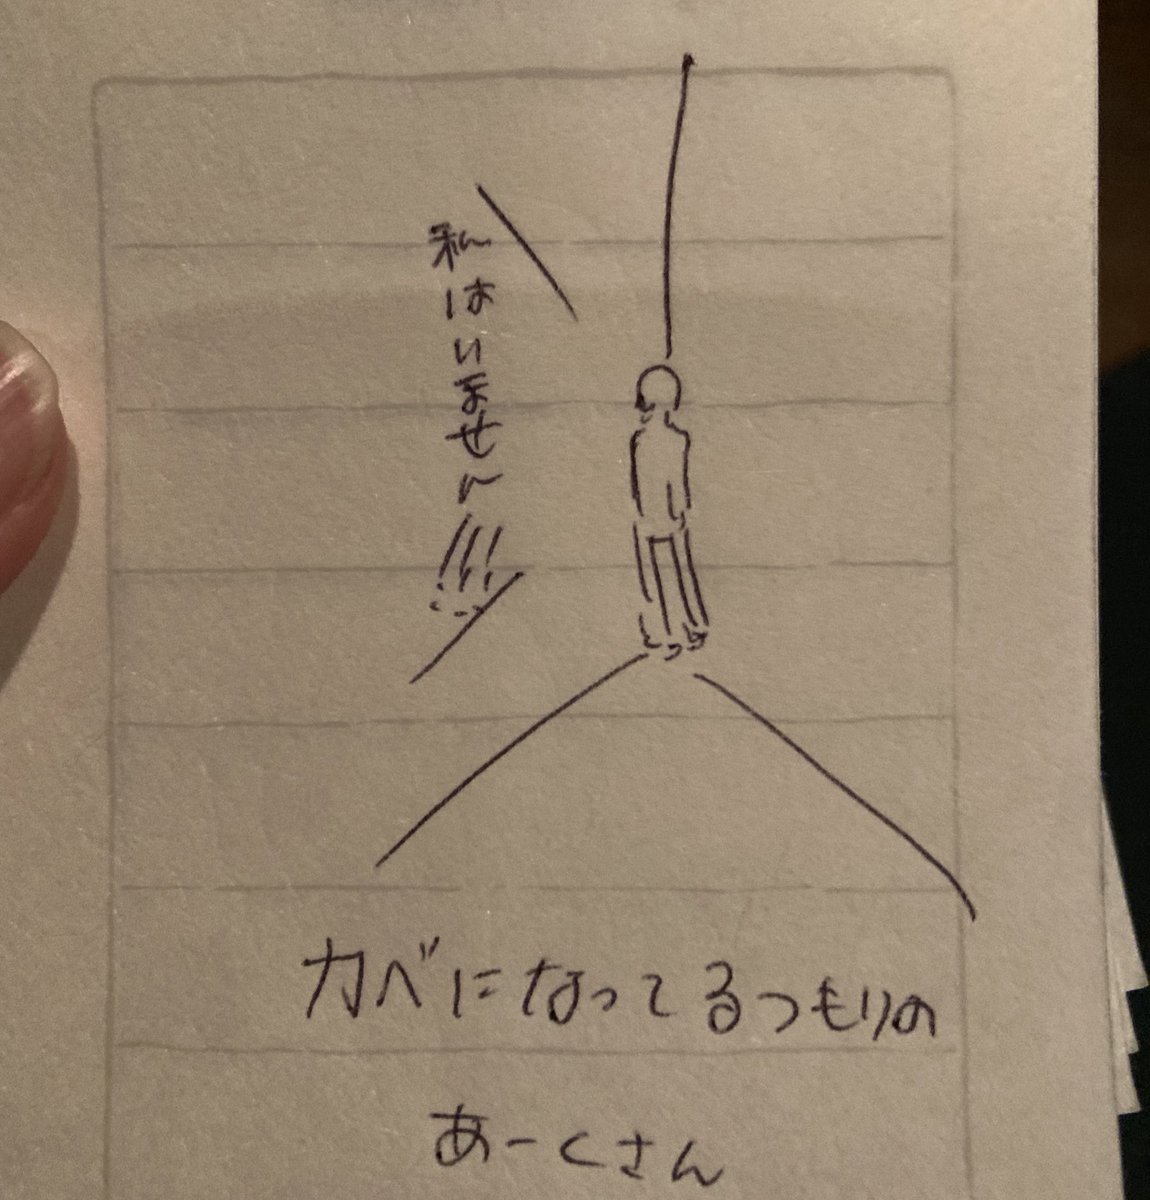 私はいません!!!
カベになってるつもりの
あーくさん